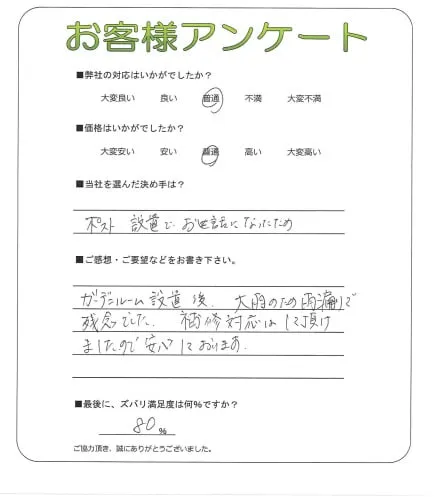 お客様アンケート
■弊社の対応はいかがでしたか?
大変良い 良い 普通 不満 大変不満
■価格はいかがでしたか?
大変安い 安い 普通 高い 大変高い
■当社を選んだ決め手は?
ポスト設置でお世話になったため
■ご感想・ご要望などをお書き下さい。
ガーデンルーム設置後、大雨のため雨漏りで
残念でした。補修対応はして頂け
ましたので安心しております。
■最後に、ズバリ満足度は何%ですか?
80%
ご協力頂き、誠にありがとうございました。